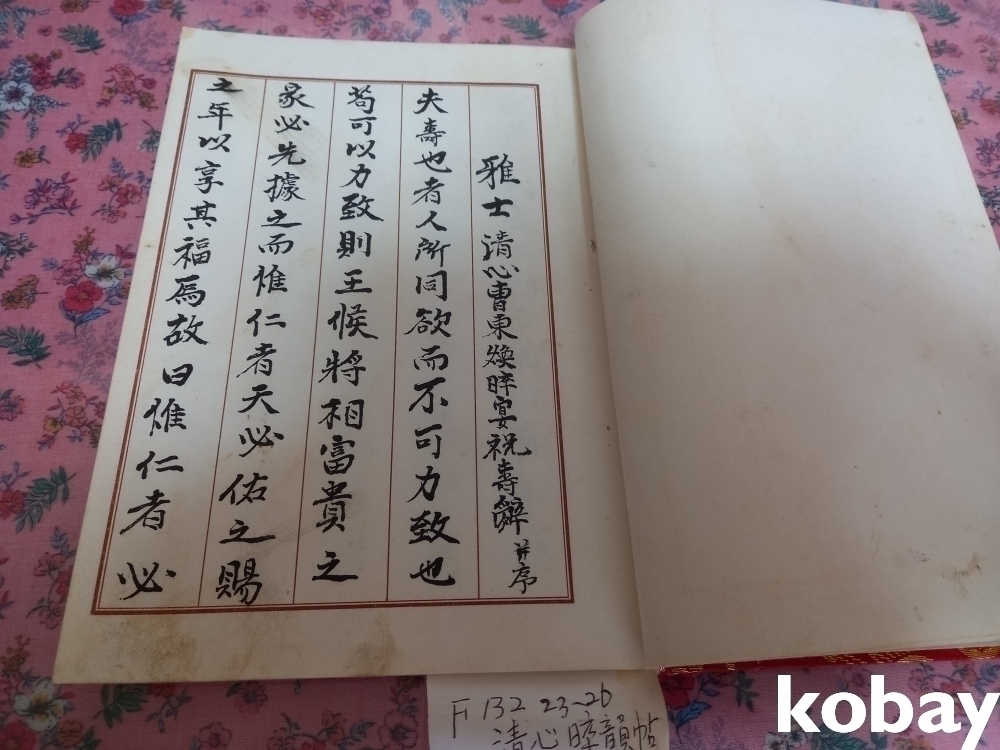 雅士清心曹東煥晬宴祝壽辭 并序
夫壽也者人所同欲而不可力致也
苟可以力致則王候將相富貴之
家必先據之而惟仁者天必佑之賜
之年以享其福焉故曰惟仁者必
F 132 23~26
清心晬韻帖
kobay